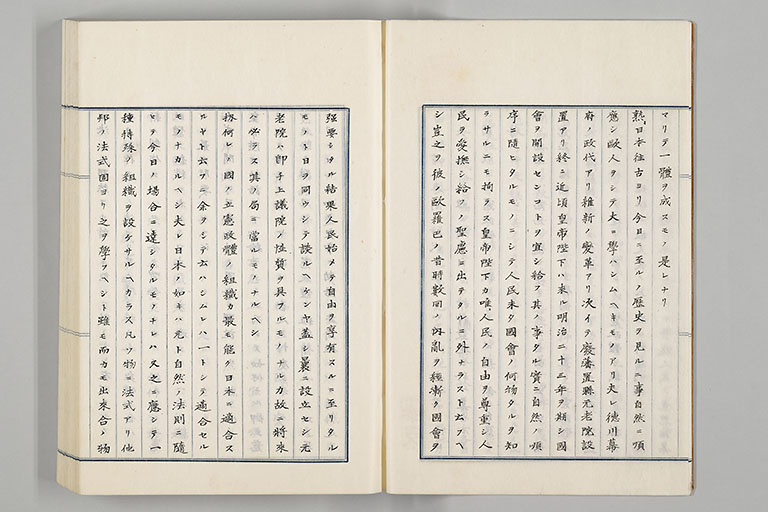 マリテ一體ヲ成スモノ是レナリ
熟日本往古ヨリ今日ニ至ルノ歴史ヲ見ルニ事自然ニ順
應シ歐人ヲシテ大ニ學ハシムヘキモノアリ夫レ徳川幕
府ノ政代アリ維新ノ變革アリ次イテ廢藩置縣元老院設
置アリ終ニ近頃皇帝陛下ハ来ル明治二十三年ヲ期シ國
會ヲ開設センコトヲ宣シ給フ其ノ事タル實ニ自然ノ順
序ニ隨ヒタルモノニシテ人民未タ國會ノ何物タルヲ知
ラサルニモ拘ラス皇帝陛下カ唯人民ノ自由ヲ尊重シ人
民ヲ愛撫シ給フノ聖慮ニ出テタルニ外ナラスト云フヘ
シ豈之ヲ彼ノ歐羅巴ノ昔時數回ノ内亂ヲ經漸ク國會ヲ
強要シタル結果人民始メテ自由ヲ享有スルニ至リタル
モノト日ヲ同ウシテ談ルヘケンヤ蓋シ曩ニ設立セシ元
老院ハ即チ上議院ノ性質ヲ具フルモノナルカ故ニ將來
ハ必ラス其ノ局ニ當ルモノナルヘシ
抑何レノ國ノ立憲政體ノ組織カ最モ能ク日本ニ適合ス
ルヤト云フニ余ヲシテ云ハシムレハ一トシテ適合セル
モノナカルヘシ夫レ日本ノ如キハ元ト自然ノ法則ニ隨
ヒテ今日ノ場合ニ達シタルモノナレハ又之ニ應シテ一
種特殊ノ組織ヲ設ケサルヘカラス凡ソ物ニ法式アリ他
邦ノ法式固ヨリ之ヲ學フヘシト雖モ而カモ出來合ノ物